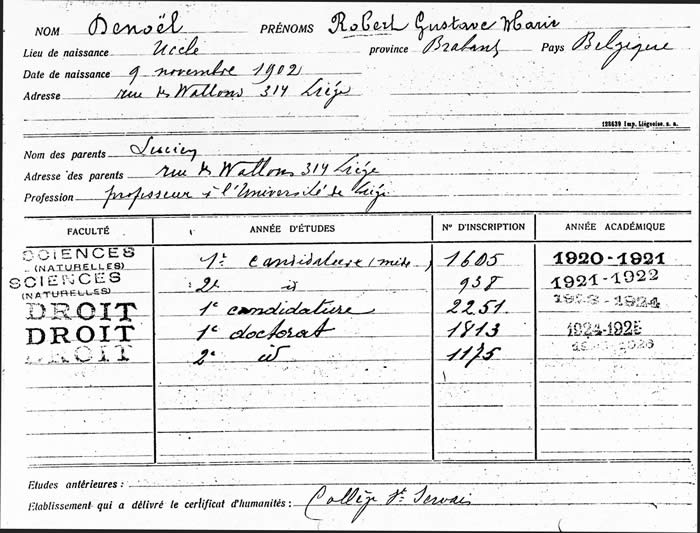 NOM Denoël PRÉNOMS Robert Gustave Marie
Lieu de naissance Uccle province Brabant Pays Belgique
Date de naissance 9 novembre 1902
Adresse rue des Wallons 314 Liége
128639 Imp. Liégeoise, s. a.
Nom des parents Lucien
Adresse des parents rue des Wallons 314 Liége
Profession professeur à l'Université de Liége
FACULTÉ ANNÉE D'ÉTUDES N° D'INSCRIPTION ANNÉE ACADÉMIQUE
SCIENCES (NATURELLES) 1e candidature ( ) 1605 1920-1921
SCIENCES (NATURELLES) 2e id 938 1921-1922
DROIT 1e candidature 2251 1923-1924
DROIT 1e doctorat 1813 1924-1925
DROIT 2e id 1175
Etudes antérieures :
Etablissement qui a délivré le certificat d'humanités : Collège St. Servais